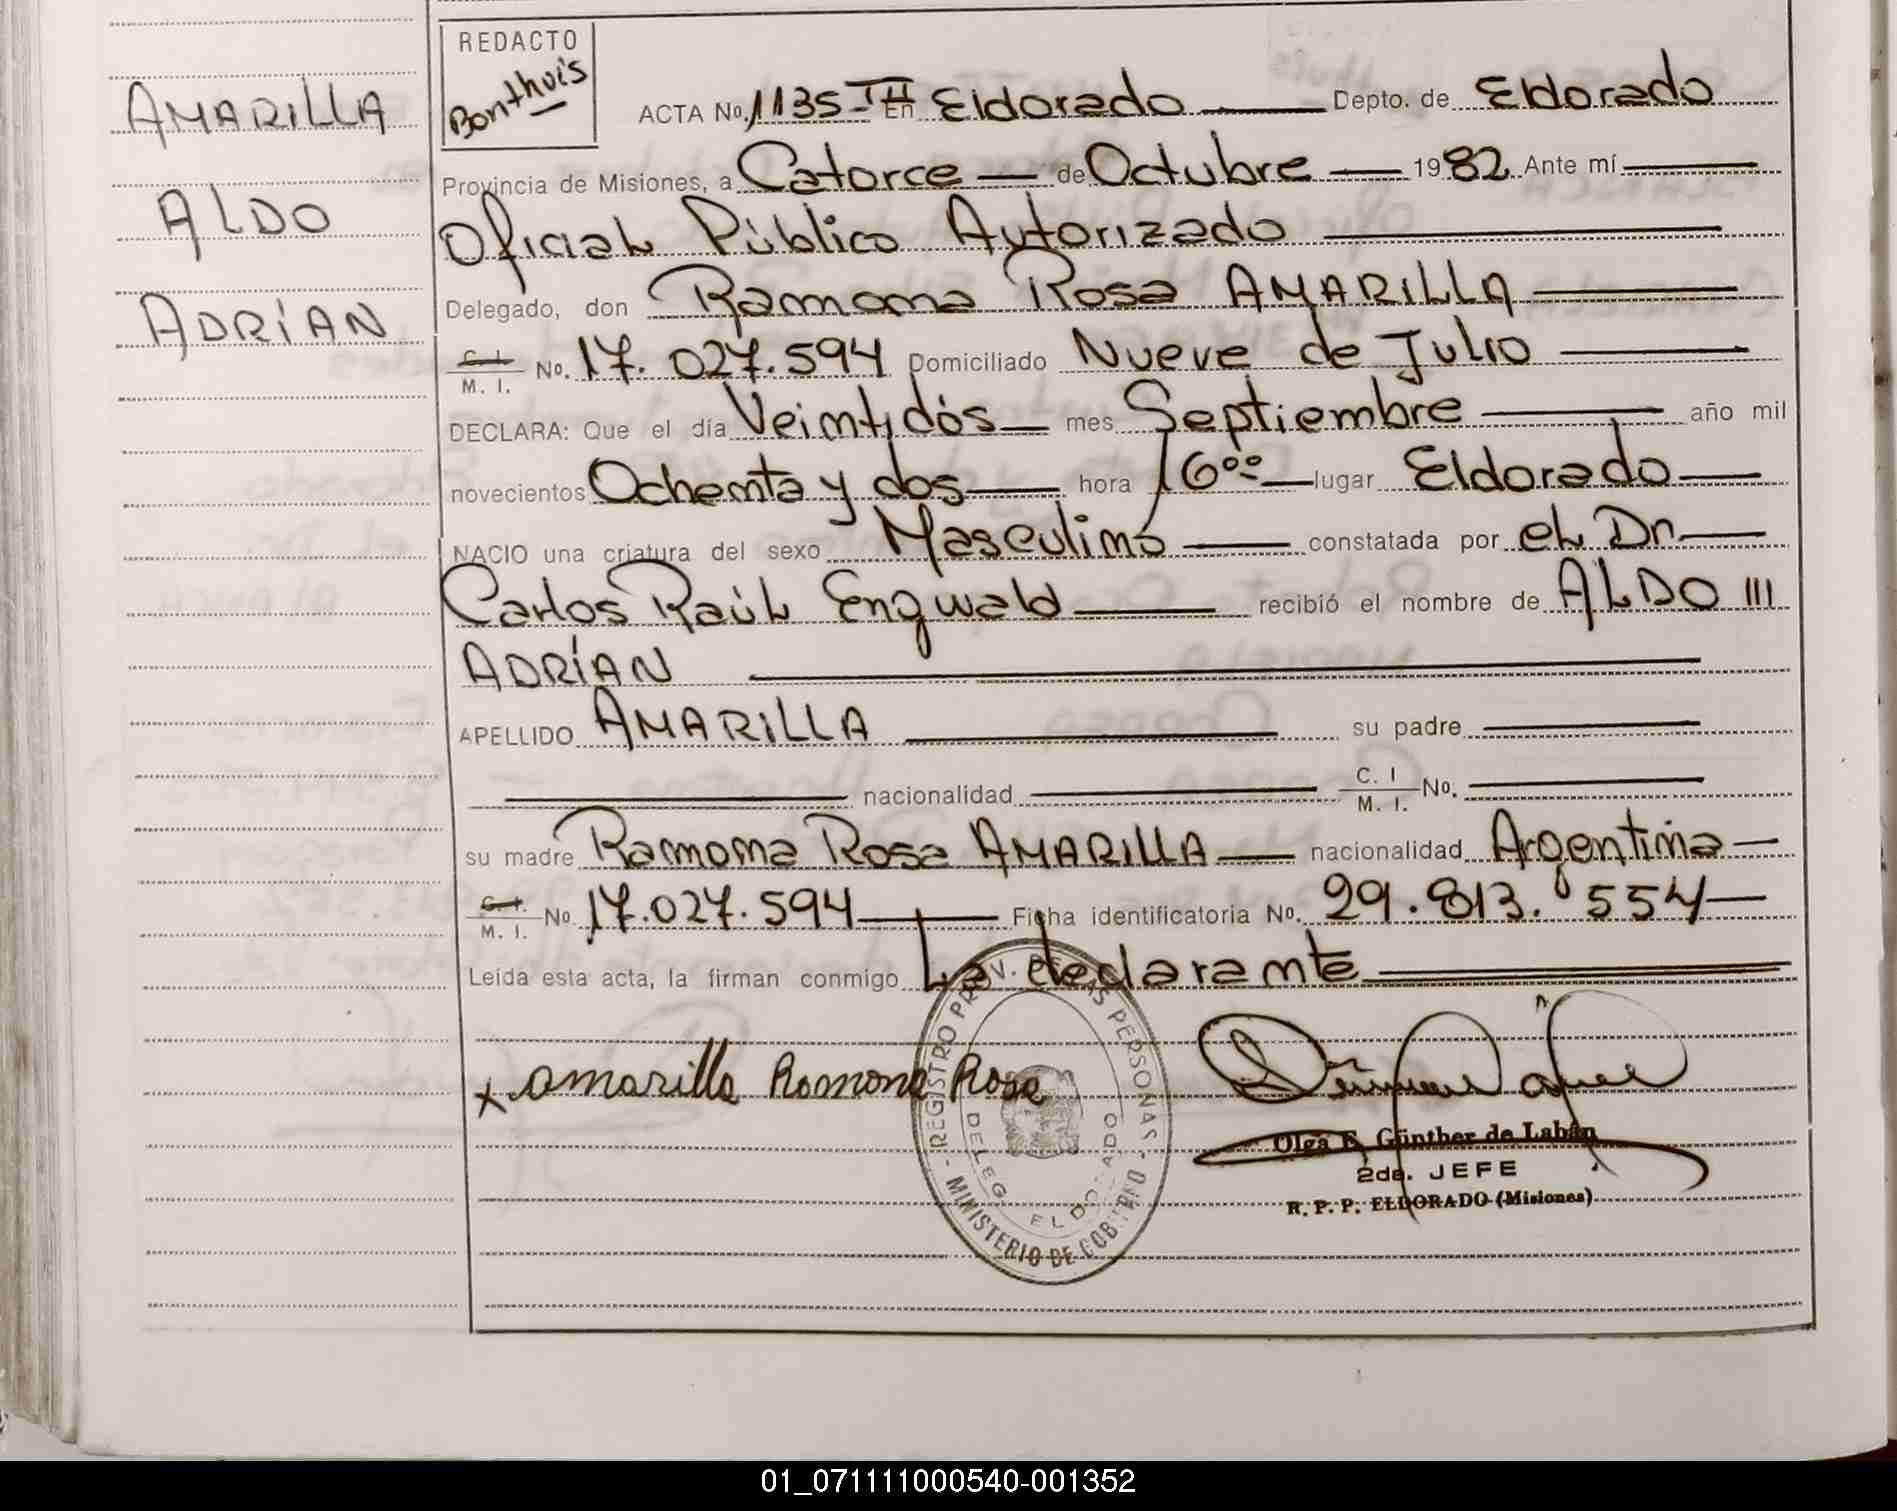 AMARILLA
ALDO
ADRÍAN
REDACTO
Bonthuis
ACTA No. 1135-TH En Eldorado Depto. de Eldorado
Provincia de Misiones, a Catorce de Octubre 1982 Ante mí
Oficial Público Autorizado
Delegado, don Ramona Rosa AMARILLA
C. I. M. I. No. 17.027.594 Domiciliado Nueve de Julio
DECLARA: Que el día Veintidós mes Septiembre año mil
novecientos Ochenta y dos hora 16°° lugar Eldorado
NACIO una criatura del sexo Masculino constatada por el Dr.
Carlos Raúl Engwald recibió el nombre de ALDO
ADRÍAN
APELLIDO AMARILLA su padre
nacionalidad C. I M. I. No.
su madre Ramona Rosa AMARILLA nacionalidad Argentina
C. I. M. I. No 17.027.594 Ficha identificatoria No. 29.813.554
Leída esta acta, la firman conmigo La declarante
x amarilla Ramona Rosa
REGISTRO PROV. DE LAS PERSONAS - MINISTERIO DE GOBIERNO -
DELEG. ELDORADO
Olga E. Günther de Labán
2da. JEFE
R. P. P. ELDORADO (Misiones)
01_071111000540-001352